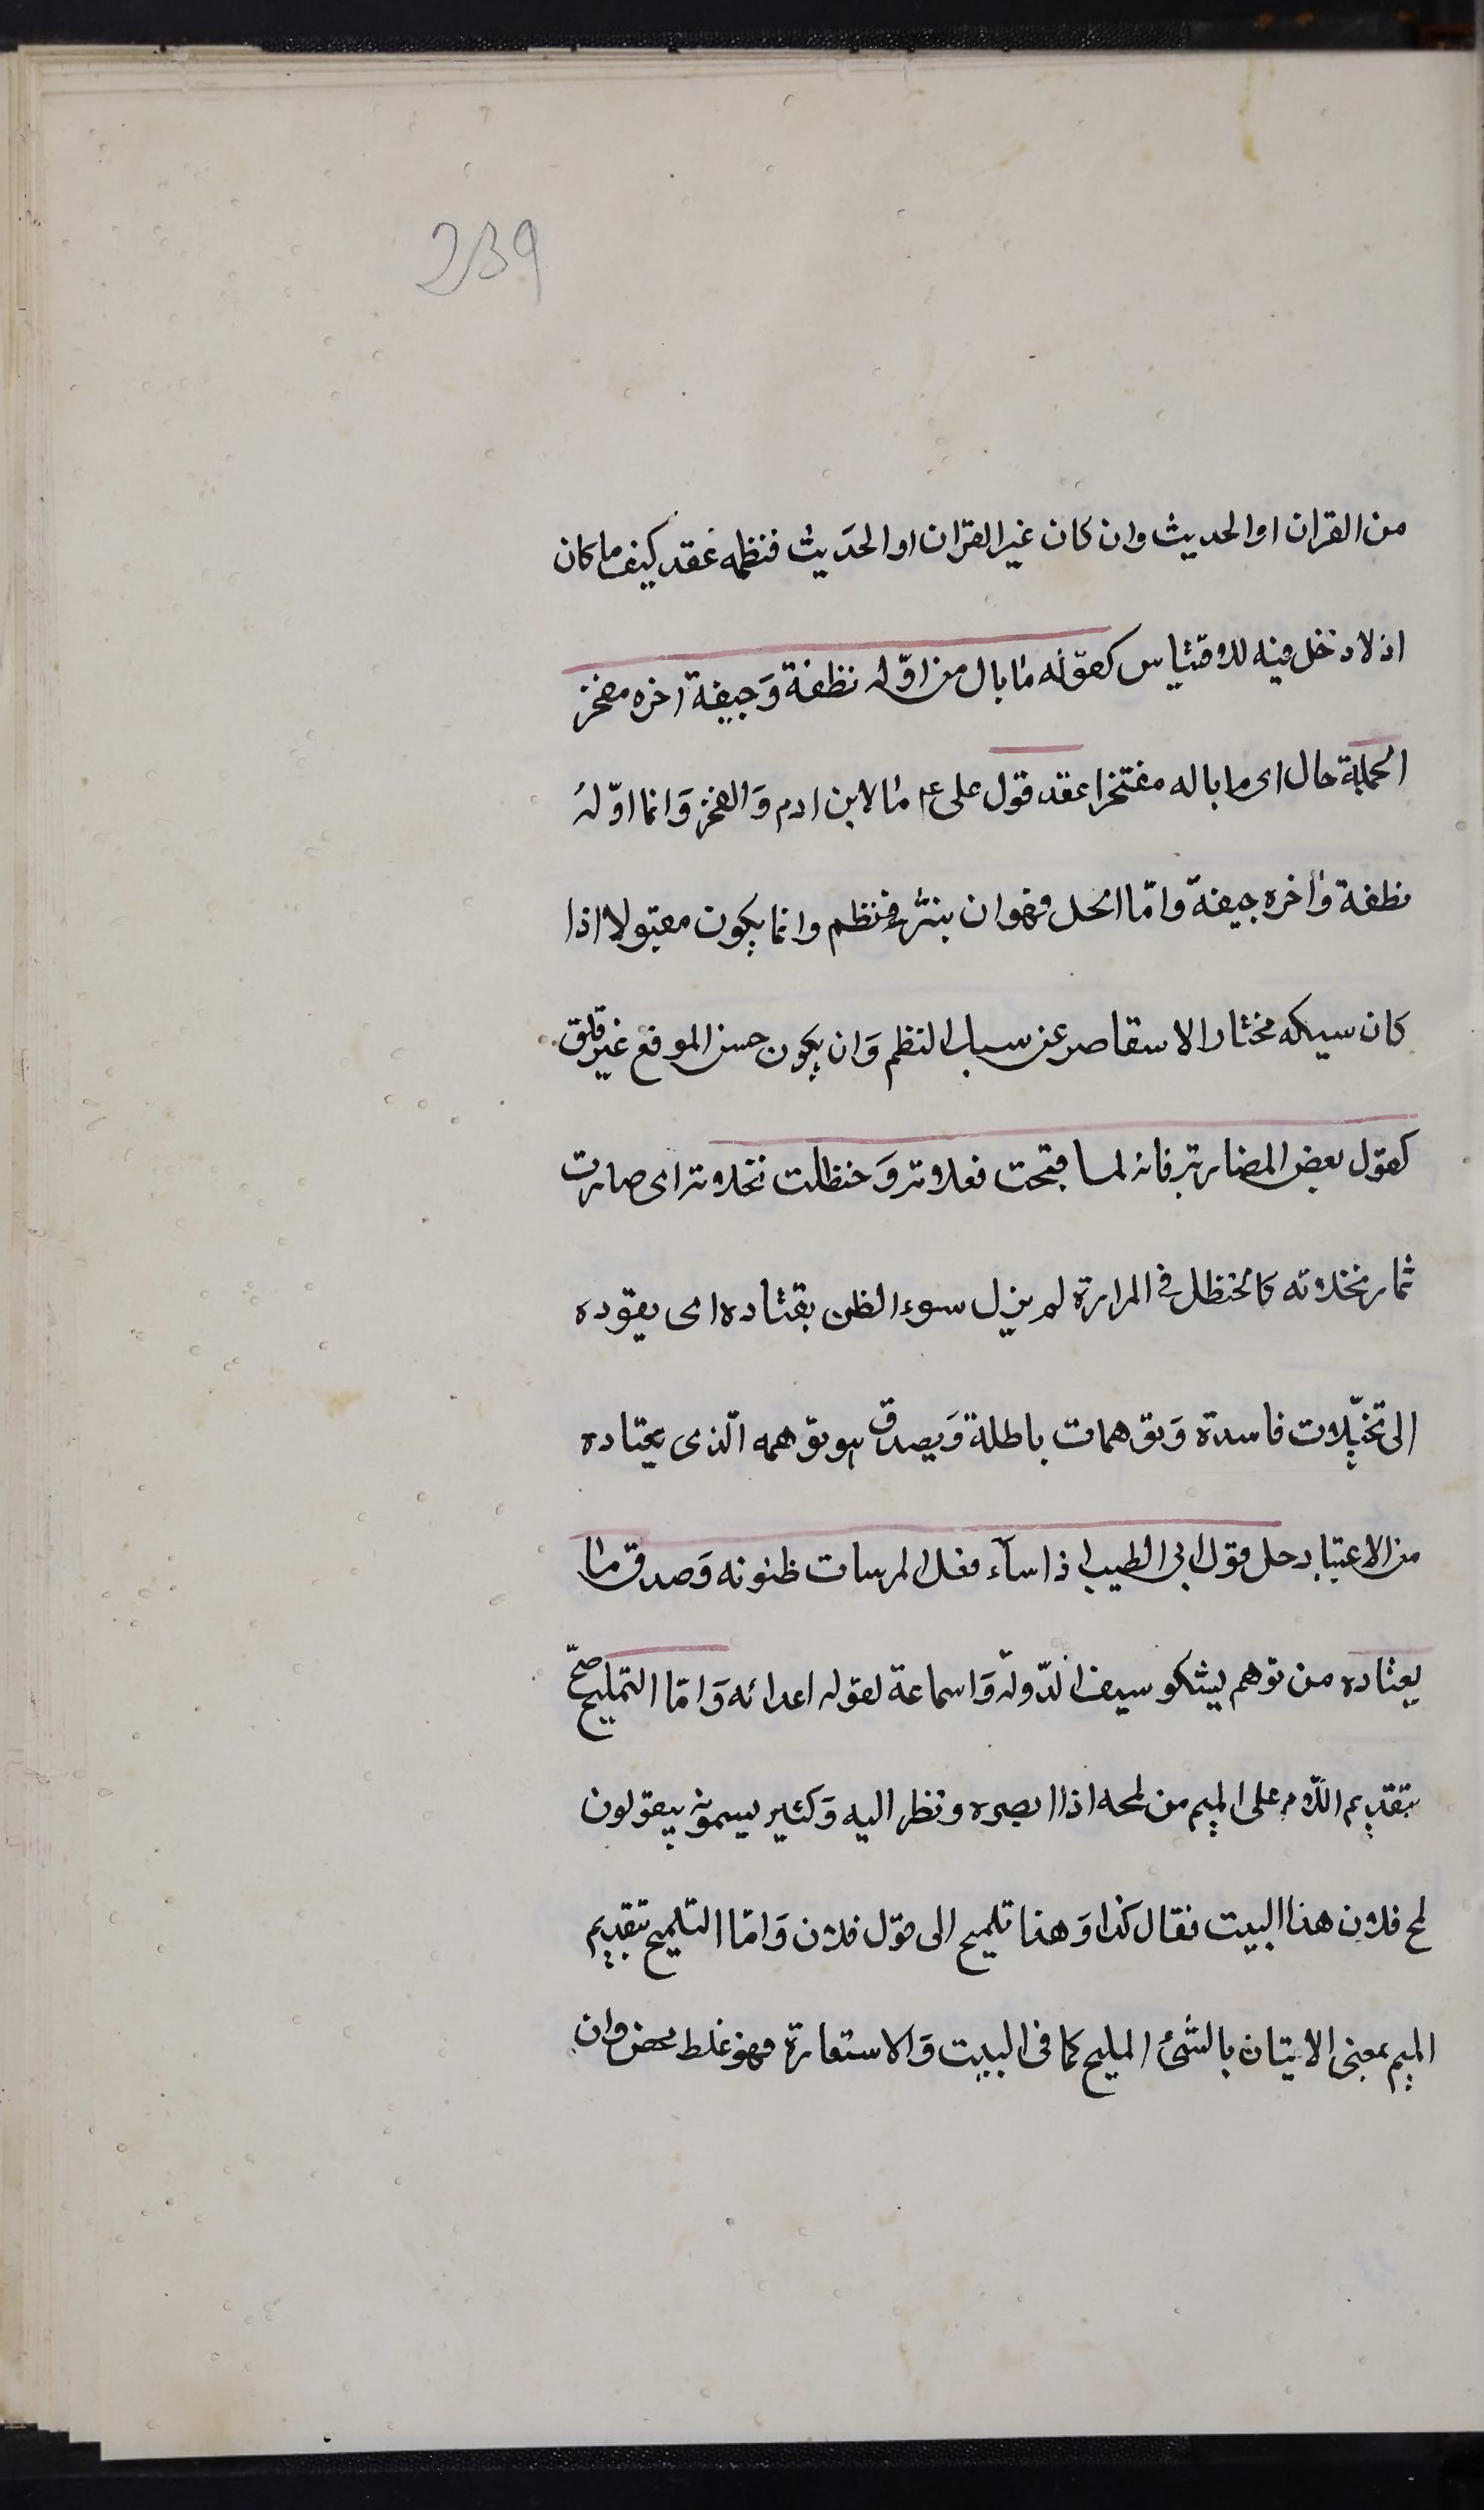 239
من القران او الحديث وان كان غير القران او الحديث فنظمه عقد كيف ما كان
اذ لا دخل فيه للاقتباس كقوله ما بال من اوّله نطفة وَجيفة اخره مفخر
الجملة حال اى ما باله مفتخرا عقد قول على ع م ما لابن ادم وَالفخر وَانما اوّله
نطفة وَاخره جيفة وامّا الحل فهو ان ينثر نظم وانما يكون مقبولا اذا
كان سبكه مختارا لا سقاصر عن سبك النظم وَان يكون حسن الموقع غير قلق
كقول بعض المغاربة فانه لما قبحت فعلاته وَحنظلت نخلاته اى صارت
ثمار نخلاته كالحنظل فى المرارة لم يزل سوء الظن يقتاده اى يقوده
الى تخيّلات فاسدة وَتوهمات باطلة وَيصدق هو توهمه الّذى يعتاده
من الاعتياد حل قول ابى الطيب اذا ساَء فعل المرسات ظنونه وَصدق ما
يعتاده من توهم يشكو سيف الدّولة وَاسماعة لقول اعدائه وَامّا التمليح صحّ
بتقديم اللّام على الميم من لمحه اذا ابصره ونظر اليه وَكثير يسمونه يقولون
لمح فلان هذا البيت فقال كذا وَهذا تلميح الى قول فلان وَامّا التلميح بتقديم
الميم بمعنى الاتيان بالشّئ المليح كما فى البيت وَالاستعارة فهو غلط محض وان